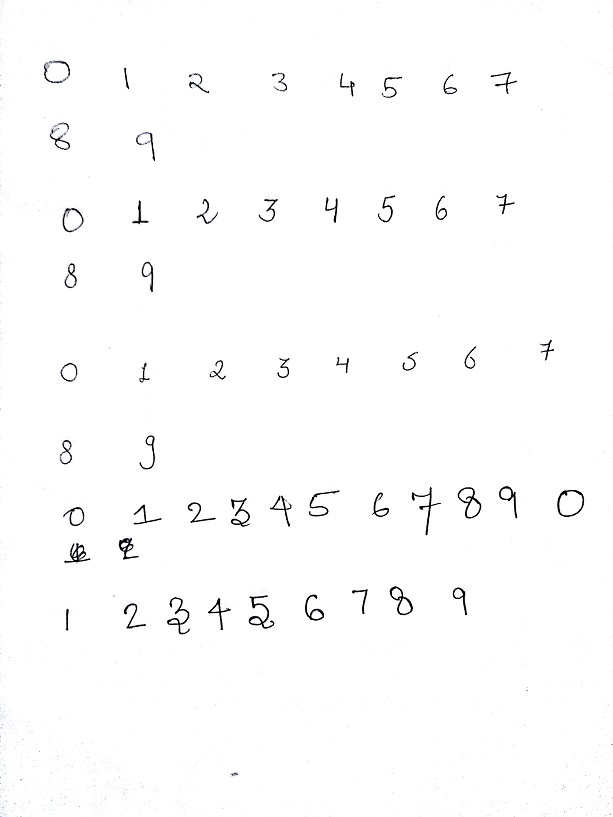 0 1 2 3 4 5 6 7
8 9
0 1 2 3 4 5 6 7
8 9
0 1 2 3 4 5 6 7
8 9
0 1 2 3 4 5 6 7 8 9 0
1 2 3 4 5 6 7 8 9